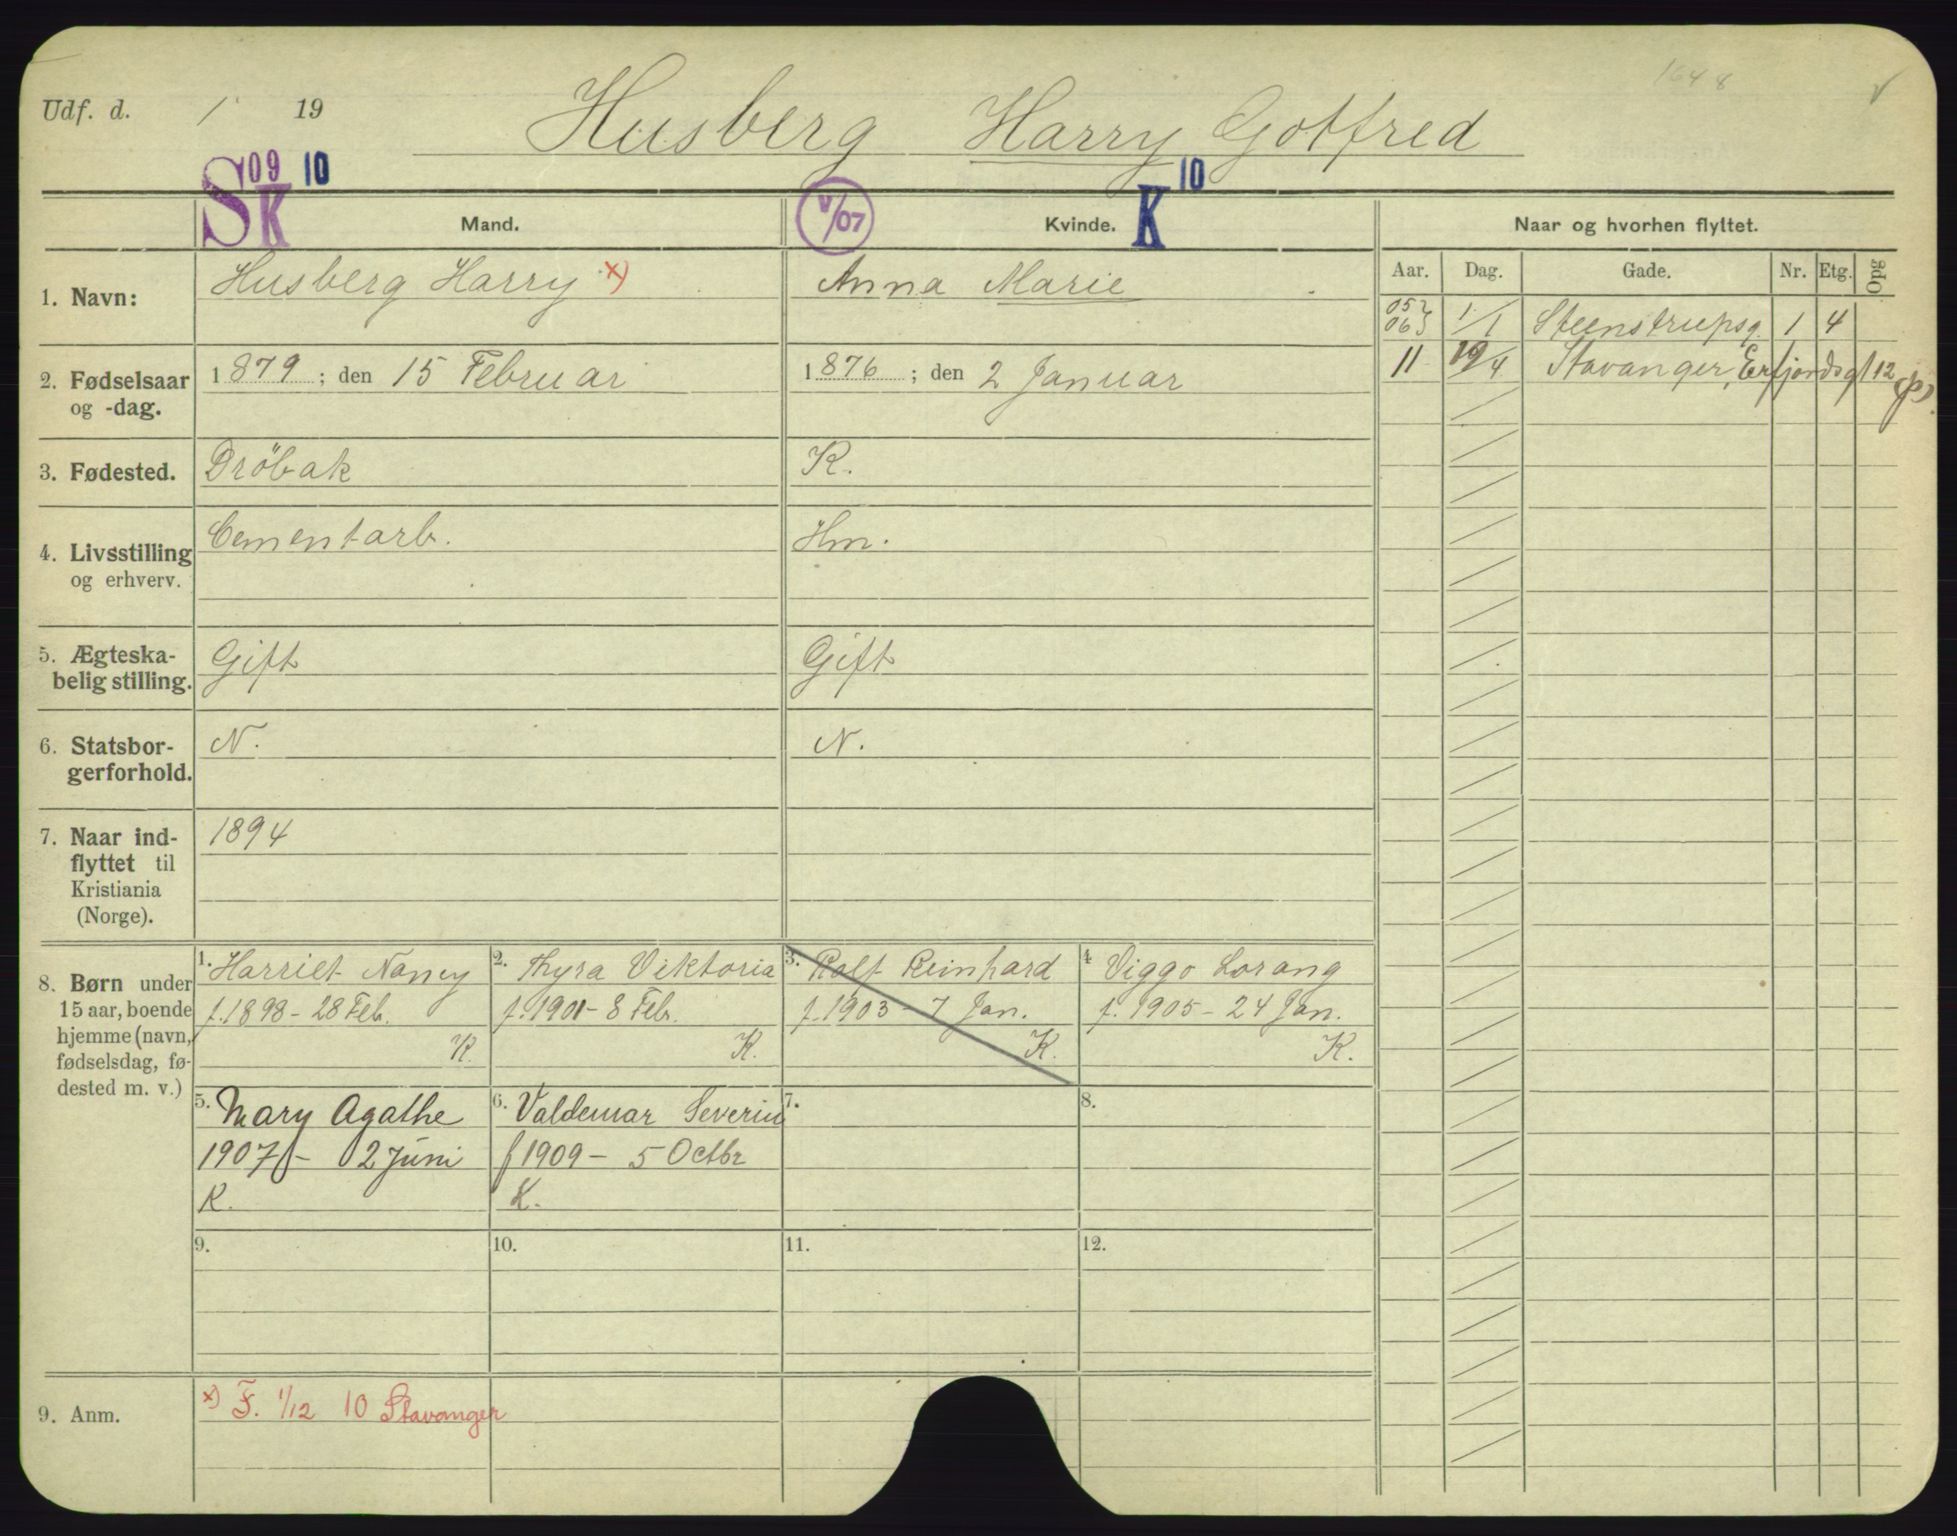 1648
Udf. d. 1 19 Husberg Harry Gotfred
S 09 K 10 Mand. V/07 Kvinde. K 10 Naar og hvorhen flyttet.
Aar. Dag. Gade. Nr. Etg. Opg
1. Navn: Husberg Harry x) Anna Marie
05 06 } 1/1 Steenstrupsg. 1 4
11 19/4 Stavanger, Erfjordsgt 12 (p).
2. Fødselsaar og -dag. 1879; den 15 Februar 1876; den 2 Januar
3. Fødested. Dröbak K.
4. Livsstilling og erhverv. Cementarb. Hm.
5. Ægteska-
belig stilling. Gift Gift
6. Statsbor-
gerforhold. N. N.
7. Naar ind-
flyttet til
Kristiania
(Norge). 1894
8. Børn under
15 aar, boende
hjemme (navn,
fødselsdag, fø-
dested m. v.)
1. Harriet Nancy
f. 1898 - 28 Feb.
K.
2. Thyra Viktoria
f. 1901 - 8 Feb.
K.
3. Ralf Reinhard
f. 1903 - 7 Jan.
K.
4 Viggo Lorang
f. 1905 - 24 Jan.
K.
5. Mary Agathe
1907 - 2 Juni
K.
6. Valdemar Severin
f 1909 - 5 Octbr
K.
7.
8.
9.
10.
11.
12.
9. Anm. x) F. 1/12 10 Stavanger